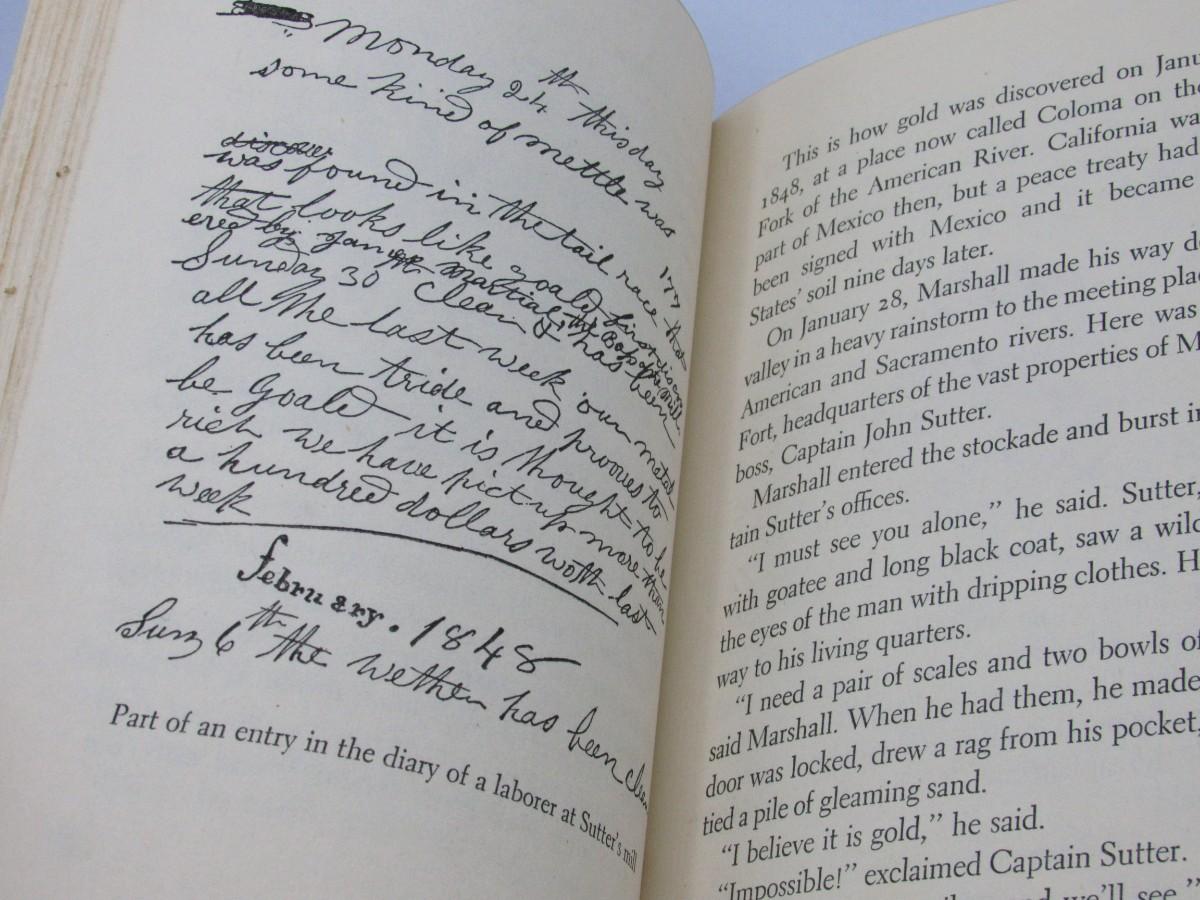 Monday 24th this day
some kind of mettle was
was found in the tail race that
that looks like goald first discov
ered by James Martial, the Boss of the Mill
Sunday 30 clear & has been
all the last week our metal
has been tride and prooves to
be goald it is thought to be
rich we have pict up more than
a hundred dollars woth last
week
February. 1848
Sun 6th the wether has been clear
Part of an entry in the diary of a laborer at Sutter's mill
This is how gold was discovered on Janu
1848, at a place now called Coloma on the
Fork of the American River. California wa
part of Mexico then, but a peace treaty had
been signed with Mexico and it became
States' soil nine days later.
On January 28, Marshall made his way d
valley in a heavy rainstorm to the meeting plac
American and Sacramento rivers. Here was
Fort, headquarters of the vast properties of M
boss, Captain John Sutter.
Marshall entered the stockade and burst in
tain Sutter's offices.
"I must see you alone," he said. Sutter,
with goatee and long black coat, saw a wild
the eyes of the man with dripping clothes. H
way to his living quarters.
"I need a pair of scales and two bowls of
said Marshall. When he had them, he made
door was locked, drew a rag from his pocket,
tied a pile of gleaming sand.
"I believe it is gold," he said.
"Impossible!" exclaimed Captain Sutter.
and we'll see."